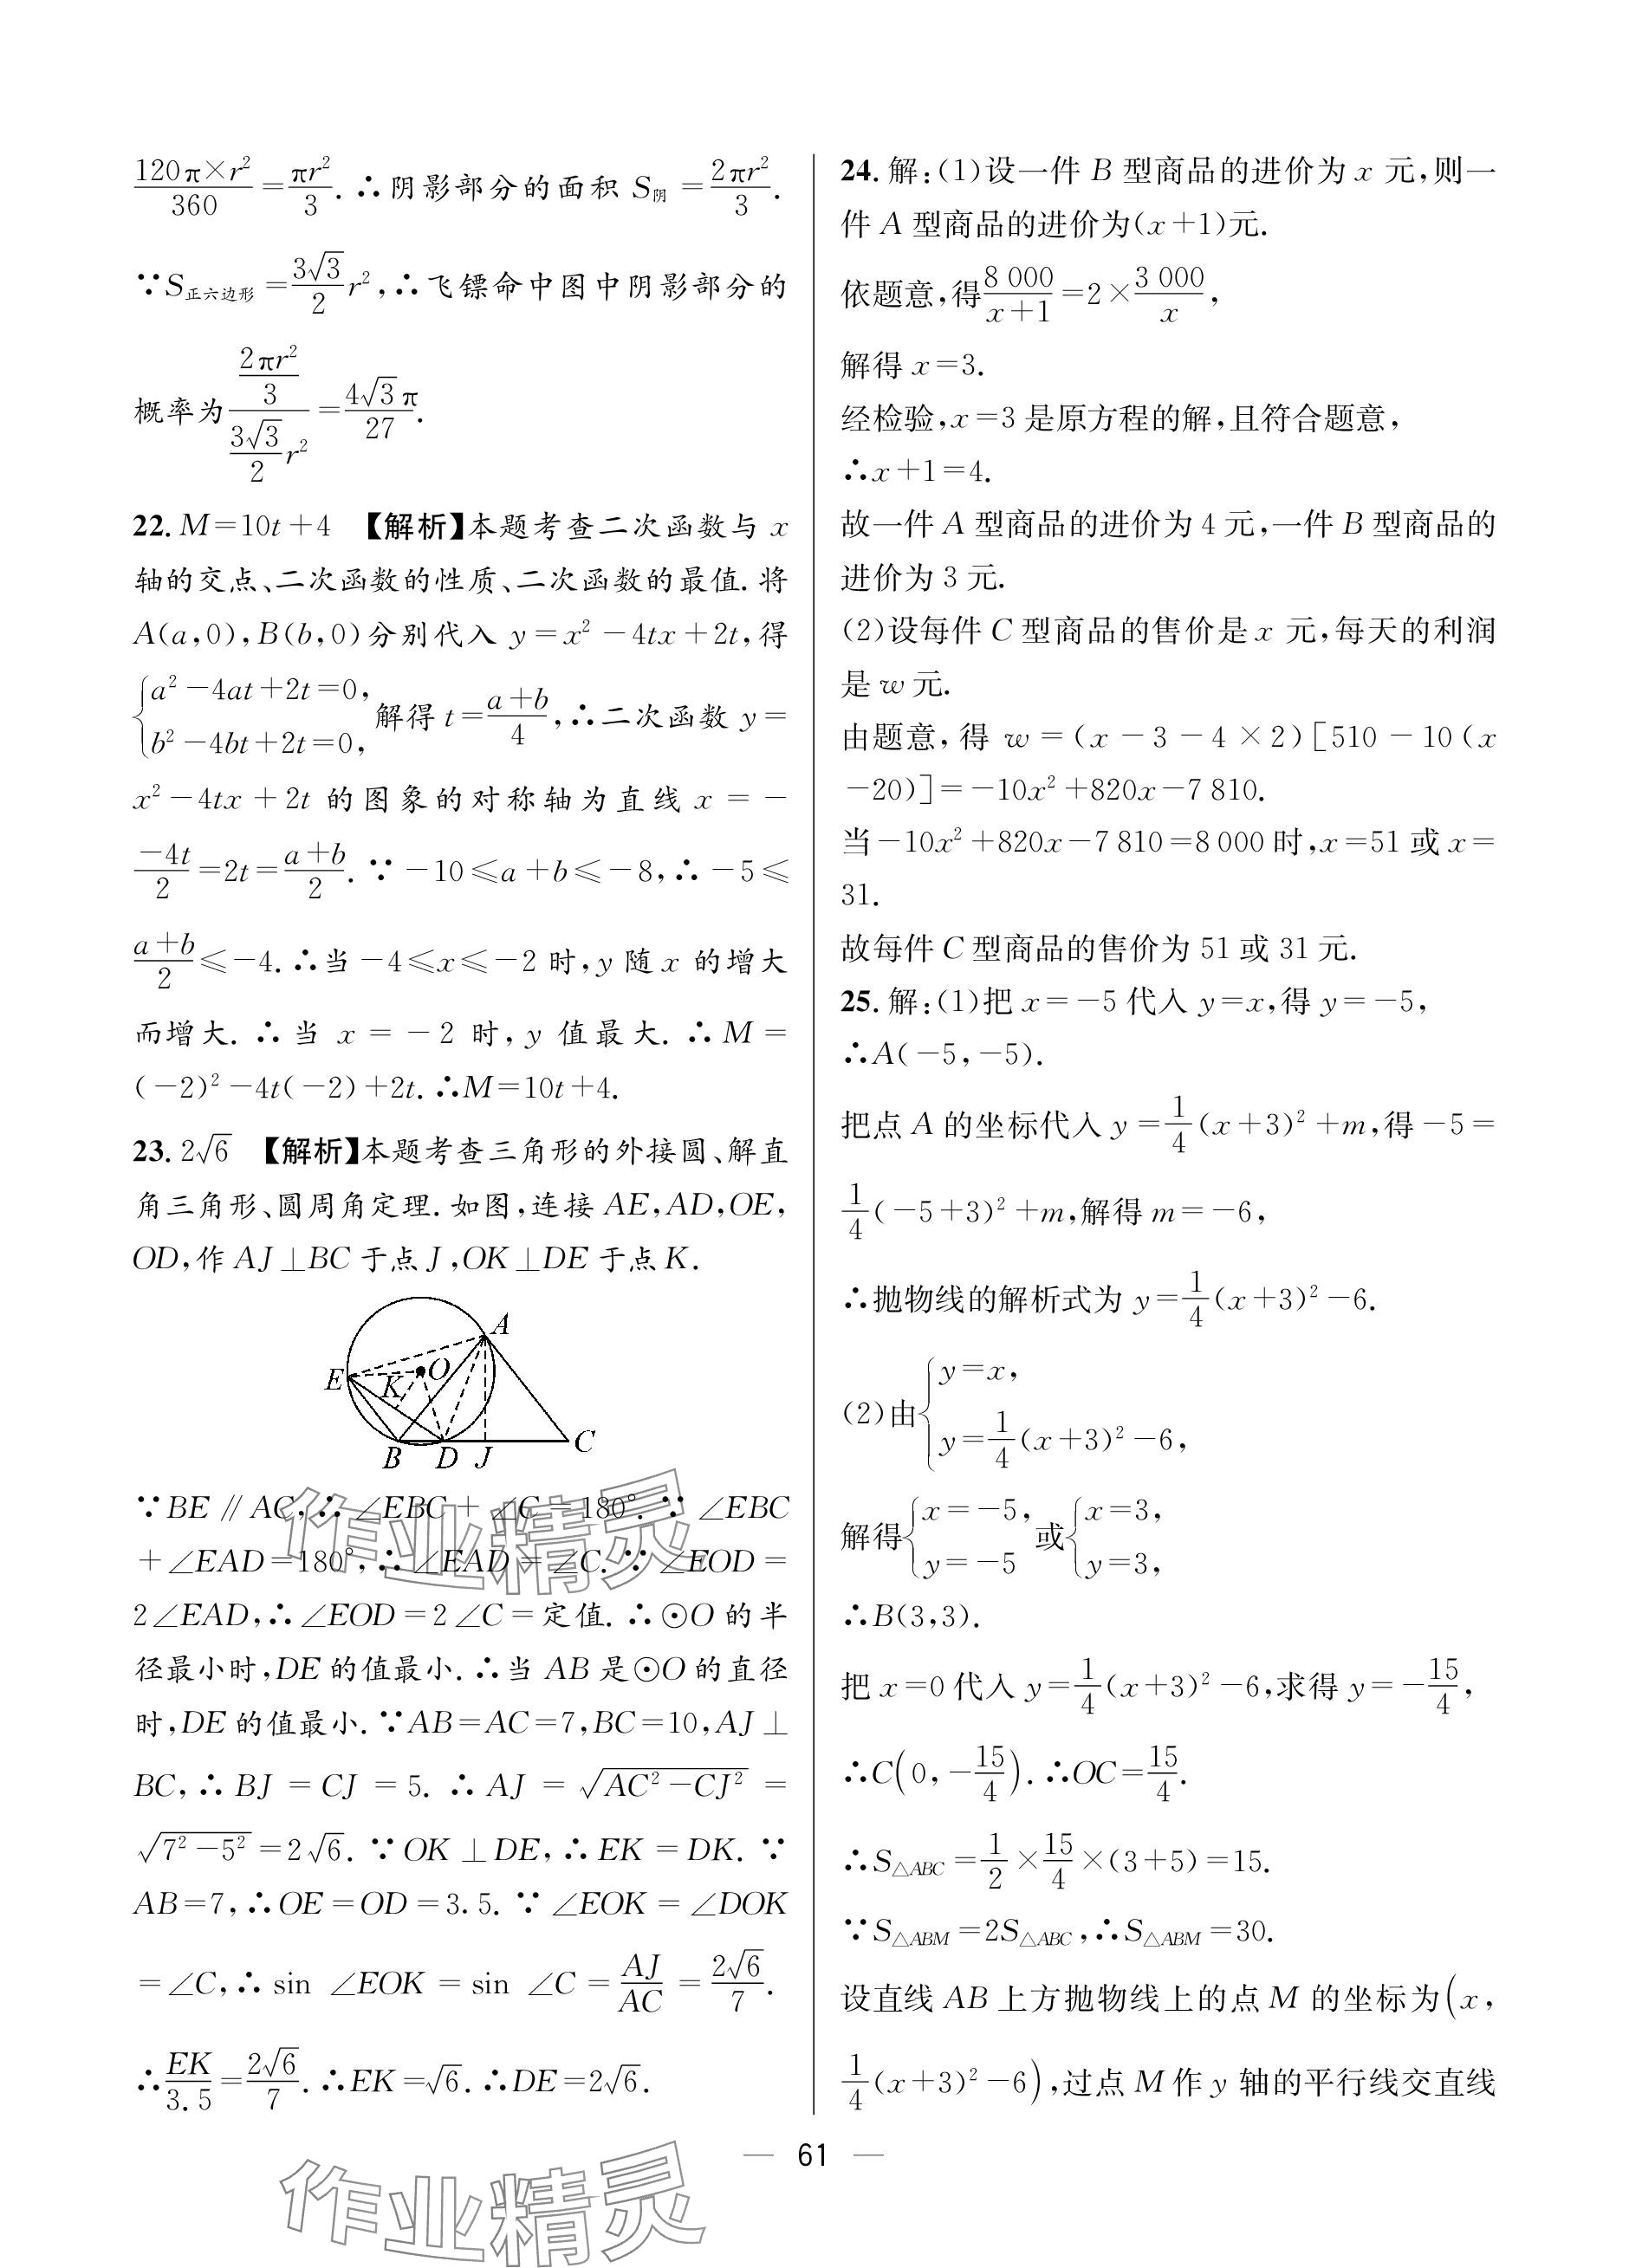 120π×r²/360=πr²/3.∴阴影部分的面积 S阴=2πr²/3.
∵S正六边形=3√3/2 r²,∴飞镖命中图中阴影部分的
概率为(2πr²/3)/(3√3/2 r²)=4√3π/27.
22. M=10t+4 【解析】本题考查二次函数与 x
轴的交点、二次函数的性质、二次函数的最值. 将
A(a,0),B(b,0)分别代入 y=x²-4tx+2t,得
{a²-4at+2t=0,
b²-4bt+2t=0, 解得 t=(a+b)/4,∴二次函数 y=
x²-4tx+2t 的图象的对称轴为直线 x=-
(-4t)/2=2t=(a+b)/2.∵-10≤a+b≤-8,∴-5≤
(a+b)/2≤-4.∴当-4≤x≤-2 时,y 随 x 的增大
而增大.∴当 x=-2 时,y 值最大.∴M=
(-2)²-4t(-2)+2t.∴M=10t+4.
23. 2√6 【解析】本题考查三角形的外接圆、解直
角三角形、圆周角定理. 如图,连接 AE,AD,OE,
OD,作 AJ⊥BC 于点 J,OK⊥DE 于点 K.
A
E
K
O
B
D
J
C
∵BE∥AC,∴∠EBC+∠C=180°.∵∠EBC
+∠EAD=180°,∴∠EAD=∠C.∵∠EOD=
2∠EAD,∴∠EOD=2∠C=定值.∴⊙O 的半
径最小时,DE 的值最小.∴当 AB 是⊙O 的直径
时,DE 的值最小.∵AB=AC=7,BC=10,AJ⊥
BC,∴BJ=CJ=5.∴AJ=√(AC²-CJ²)=
√(7²-5²)=2√6.∵OK⊥DE,∴EK=DK.∵
AB=7,∴OE=OD=3.5.∵∠EOK=∠DOK
=∠C,∴sin ∠EOK=sin ∠C=AJ/AC=2√6/7.
∴EK/3.5=2√6/7.∴EK=√6.∴DE=2√6.
24. 解:(1)设一件 B 型商品的进价为 x 元,则一
件 A 型商品的进价为(x+1)元.
依题意,得8 000/(x+1)=2×3 000/x,
解得 x=3.
经检验,x=3 是原方程的解,且符合题意,
∴x+1=4.
故一件 A 型商品的进价为 4 元,一件 B 型商品的
进价为 3 元.
(2)设每件 C 型商品的售价是 x 元,每天的利润
是 w 元.
由题意,得 w=(x-3-4×2)[510-10(x
-20)]=-10x²+820x-7 810.
当-10x²+820x-7 810=8 000 时,x=51 或 x=
31.
故每件 C 型商品的售价为 51 或 31 元.
25. 解:(1)把 x=-5 代入 y=x,得 y=-5,
∴A(-5,-5).
把点 A 的坐标代入 y=1/4(x+3)²+m,得-5=
1/4(-5+3)²+m,解得 m=-6,
∴抛物线的解析式为 y=1/4(x+3)²-6.
(2)由{y=x,
y=1/4(x+3)²-6,
解得{x=-5,
y=-5 或{x=3,
y=3,
∴B(3,3).
把 x=0 代入 y=1/4(x+3)²-6,求得 y=-15/4,
∴C(0,-15/4).∴OC=15/4.
∴S△ABC=1/2×15/4×(3+5)=15.
∵S△ABM=2S△ABC,∴S△ABM=30.
设直线 AB 上方抛物线上的点 M 的坐标为(x,
1/4(x+3)²-6),过点 M 作 y 轴的平行线交直线
— 61 —
作业精灵
作业精灵